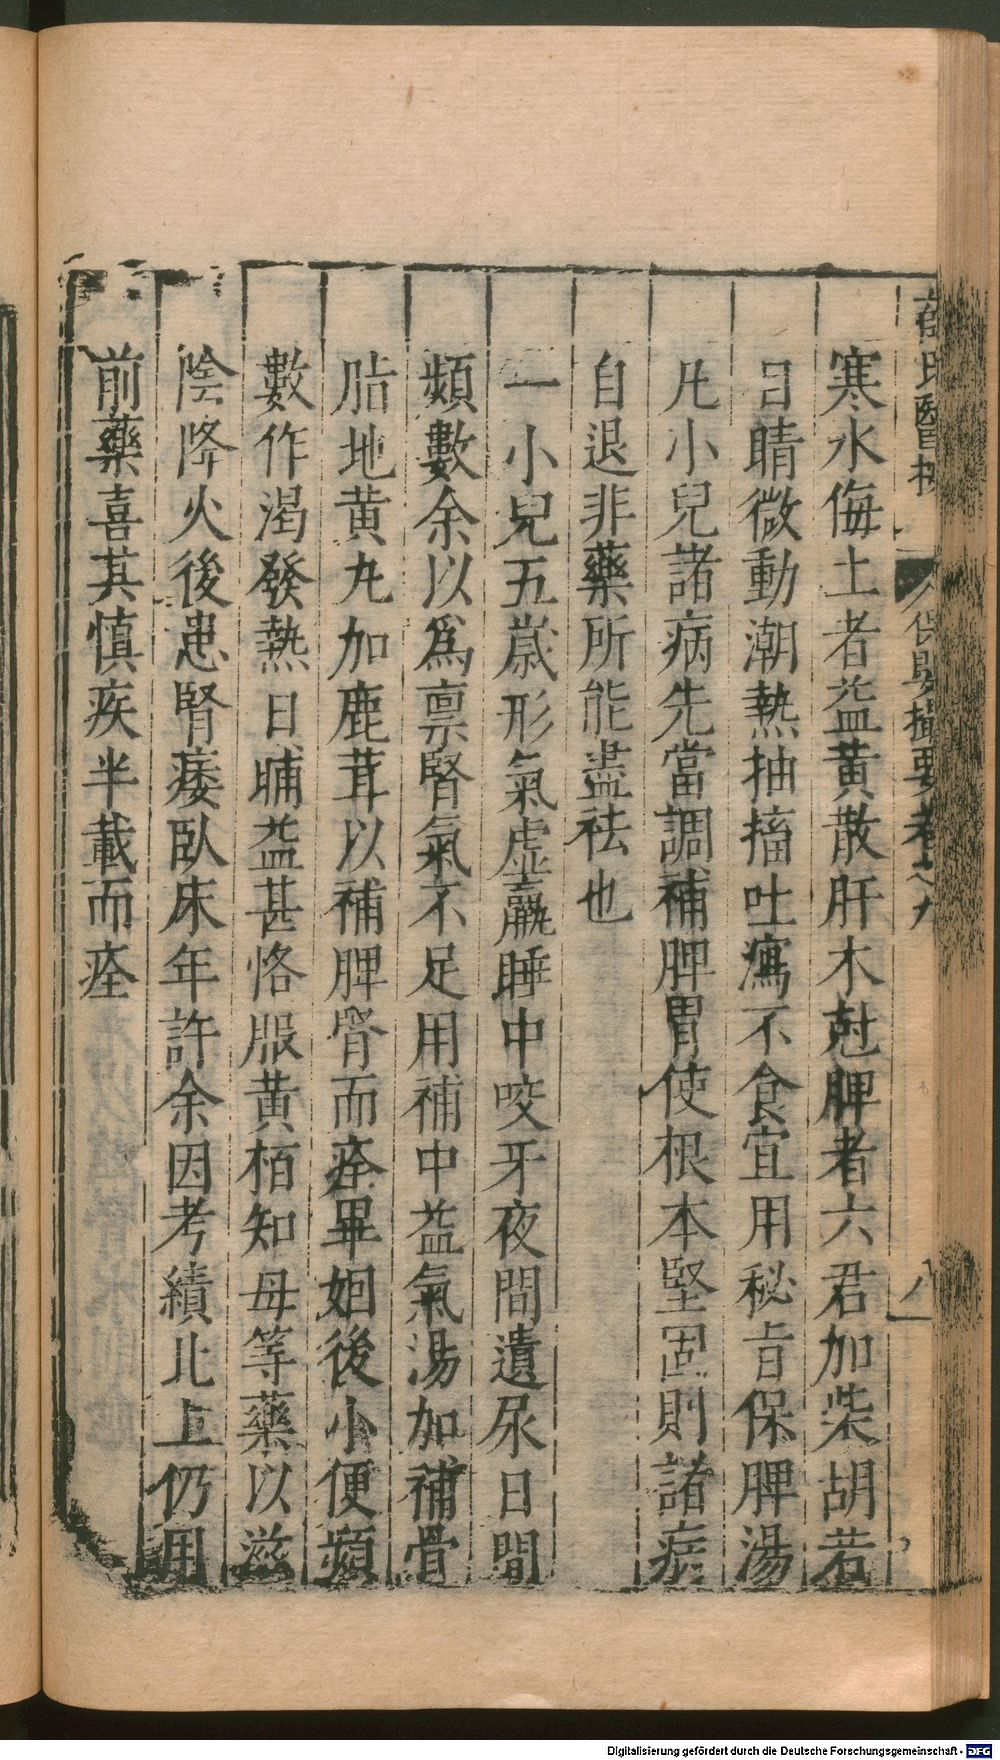 薛氏醫按 保嬰撮要卷之九 八
寒水侮土者益黃散肝木尅脾者六君加柴胡若
目睛微動潮熱抽搐吐瀉不食宜用秘旨保脾湯
凡小兒諸病先當調補脾胃使根本堅固則諸病
自退非藥所能盡祛也
一小兒五歲形氣虛羸睡中咬牙夜間遺尿日間
頻數余以爲禀腎氣不足用補中益氣湯加補骨
脂地黃丸加鹿茸以補脾腎而痊畢姻後小便頻
數作渴發熱日晡益甚恪服黃栢知母等藥以滋
陰降火後患腎痿臥床年許余因考績北上仍用
前藥喜其慎疾半載而痊
Digitalisierung gefördert durch die Deutsche Forschungsgemeinschaft - DFG